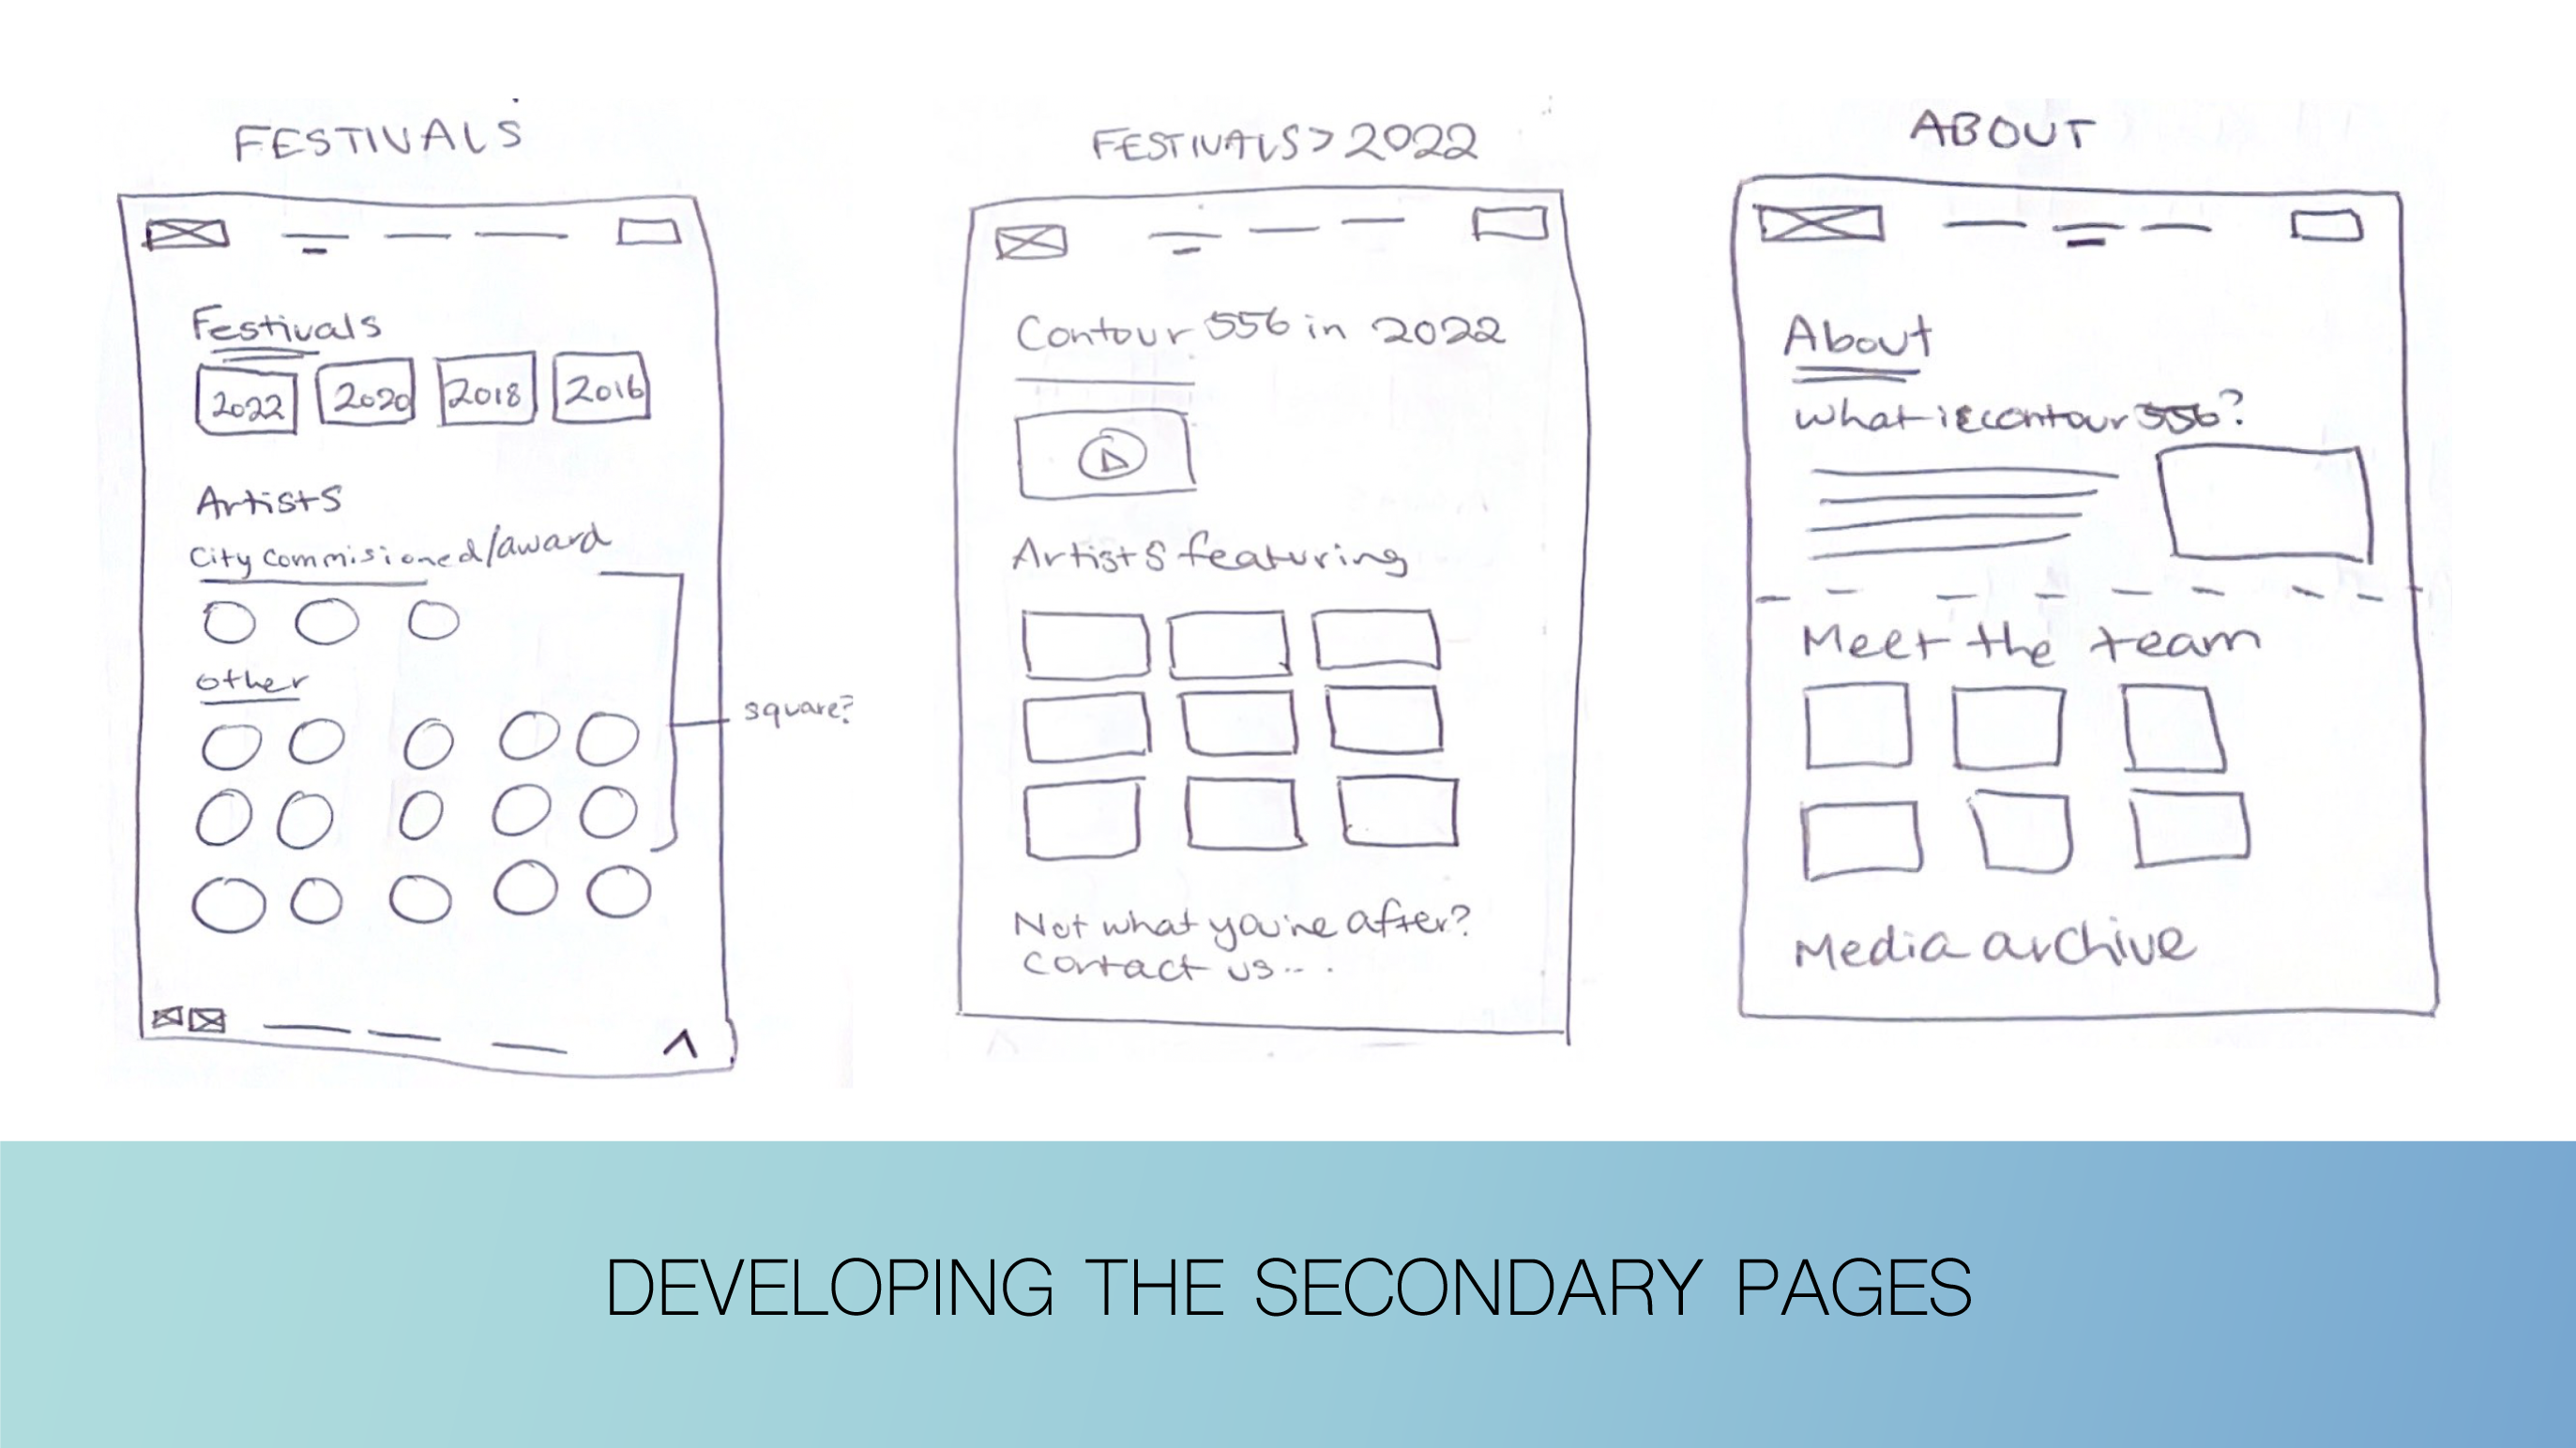 FESTIVALS
Festivals
2022 2020 2018 2016
Artists
City commisioned/award
other
square?
FESTIVALS > 2022
Contour 556 in 2022
Artists featuring
Not what you're after?
Contact us...
ABOUT
About
What is contour 556?
Meet the team
Media archive
DEVELOPING THE SECONDARY PAGES